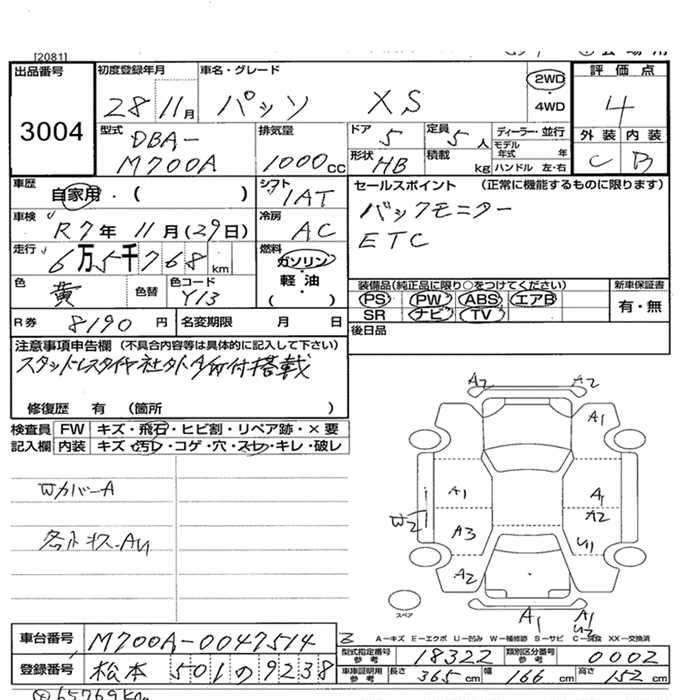 [2081]
出品番号
3004
初度登録年月
28年11月
車名・グレード
パッソ XS
2WD
・
4WD
評価点
4
外装 内装
C B
型式
DBA-
M700A
排気量
1000cc
ドア
5
定員
5人
ディーラー・並行
モデル
年式 年
形状
HB
積載
kg
ハンドル 左・右
車歴
自家用・( )
シフト
1AT
セールスポイント (正常に機能するものに限ります)
バックモニター
ETC
車検
R7年11月(29日)
冷房
AC
走行
6万5千768km
燃料
ガソリン
・
軽油
( )
色
黄
色替
色コード
Y13
装備品(純正品に限り○をつけてください)
PS PW ABS エアB
SR ナビ TV
新車保証書
有・無
R券
8190円
名変期限 月 日
後日品
注意事項申告欄 (不具合内容等は具体的に記入して下さい)
修復歴 有 (箇所 )
検査員
記入欄
FW キズ・飛石・ヒビ割・リペア跡・×要
内装 キズ・汚レ・コゲ・穴・スレ・キレ・破レ
WカバーA
A2 A2
A1
A1 A1
A2
W2
A3 U1
A2
A1 A1
スペア
A－キズ E－エクボ U－凹み W－補修跡 S－サビ C－腐食 XX－交換済
車台番号
M700A-0047514
登録番号
松本 501の9238
型式指定番号
参考
18322
類別区分番号
参考
0002
車庫証明用
参考
長さ 365cm 幅 166cm 高さ 152cm
65769km